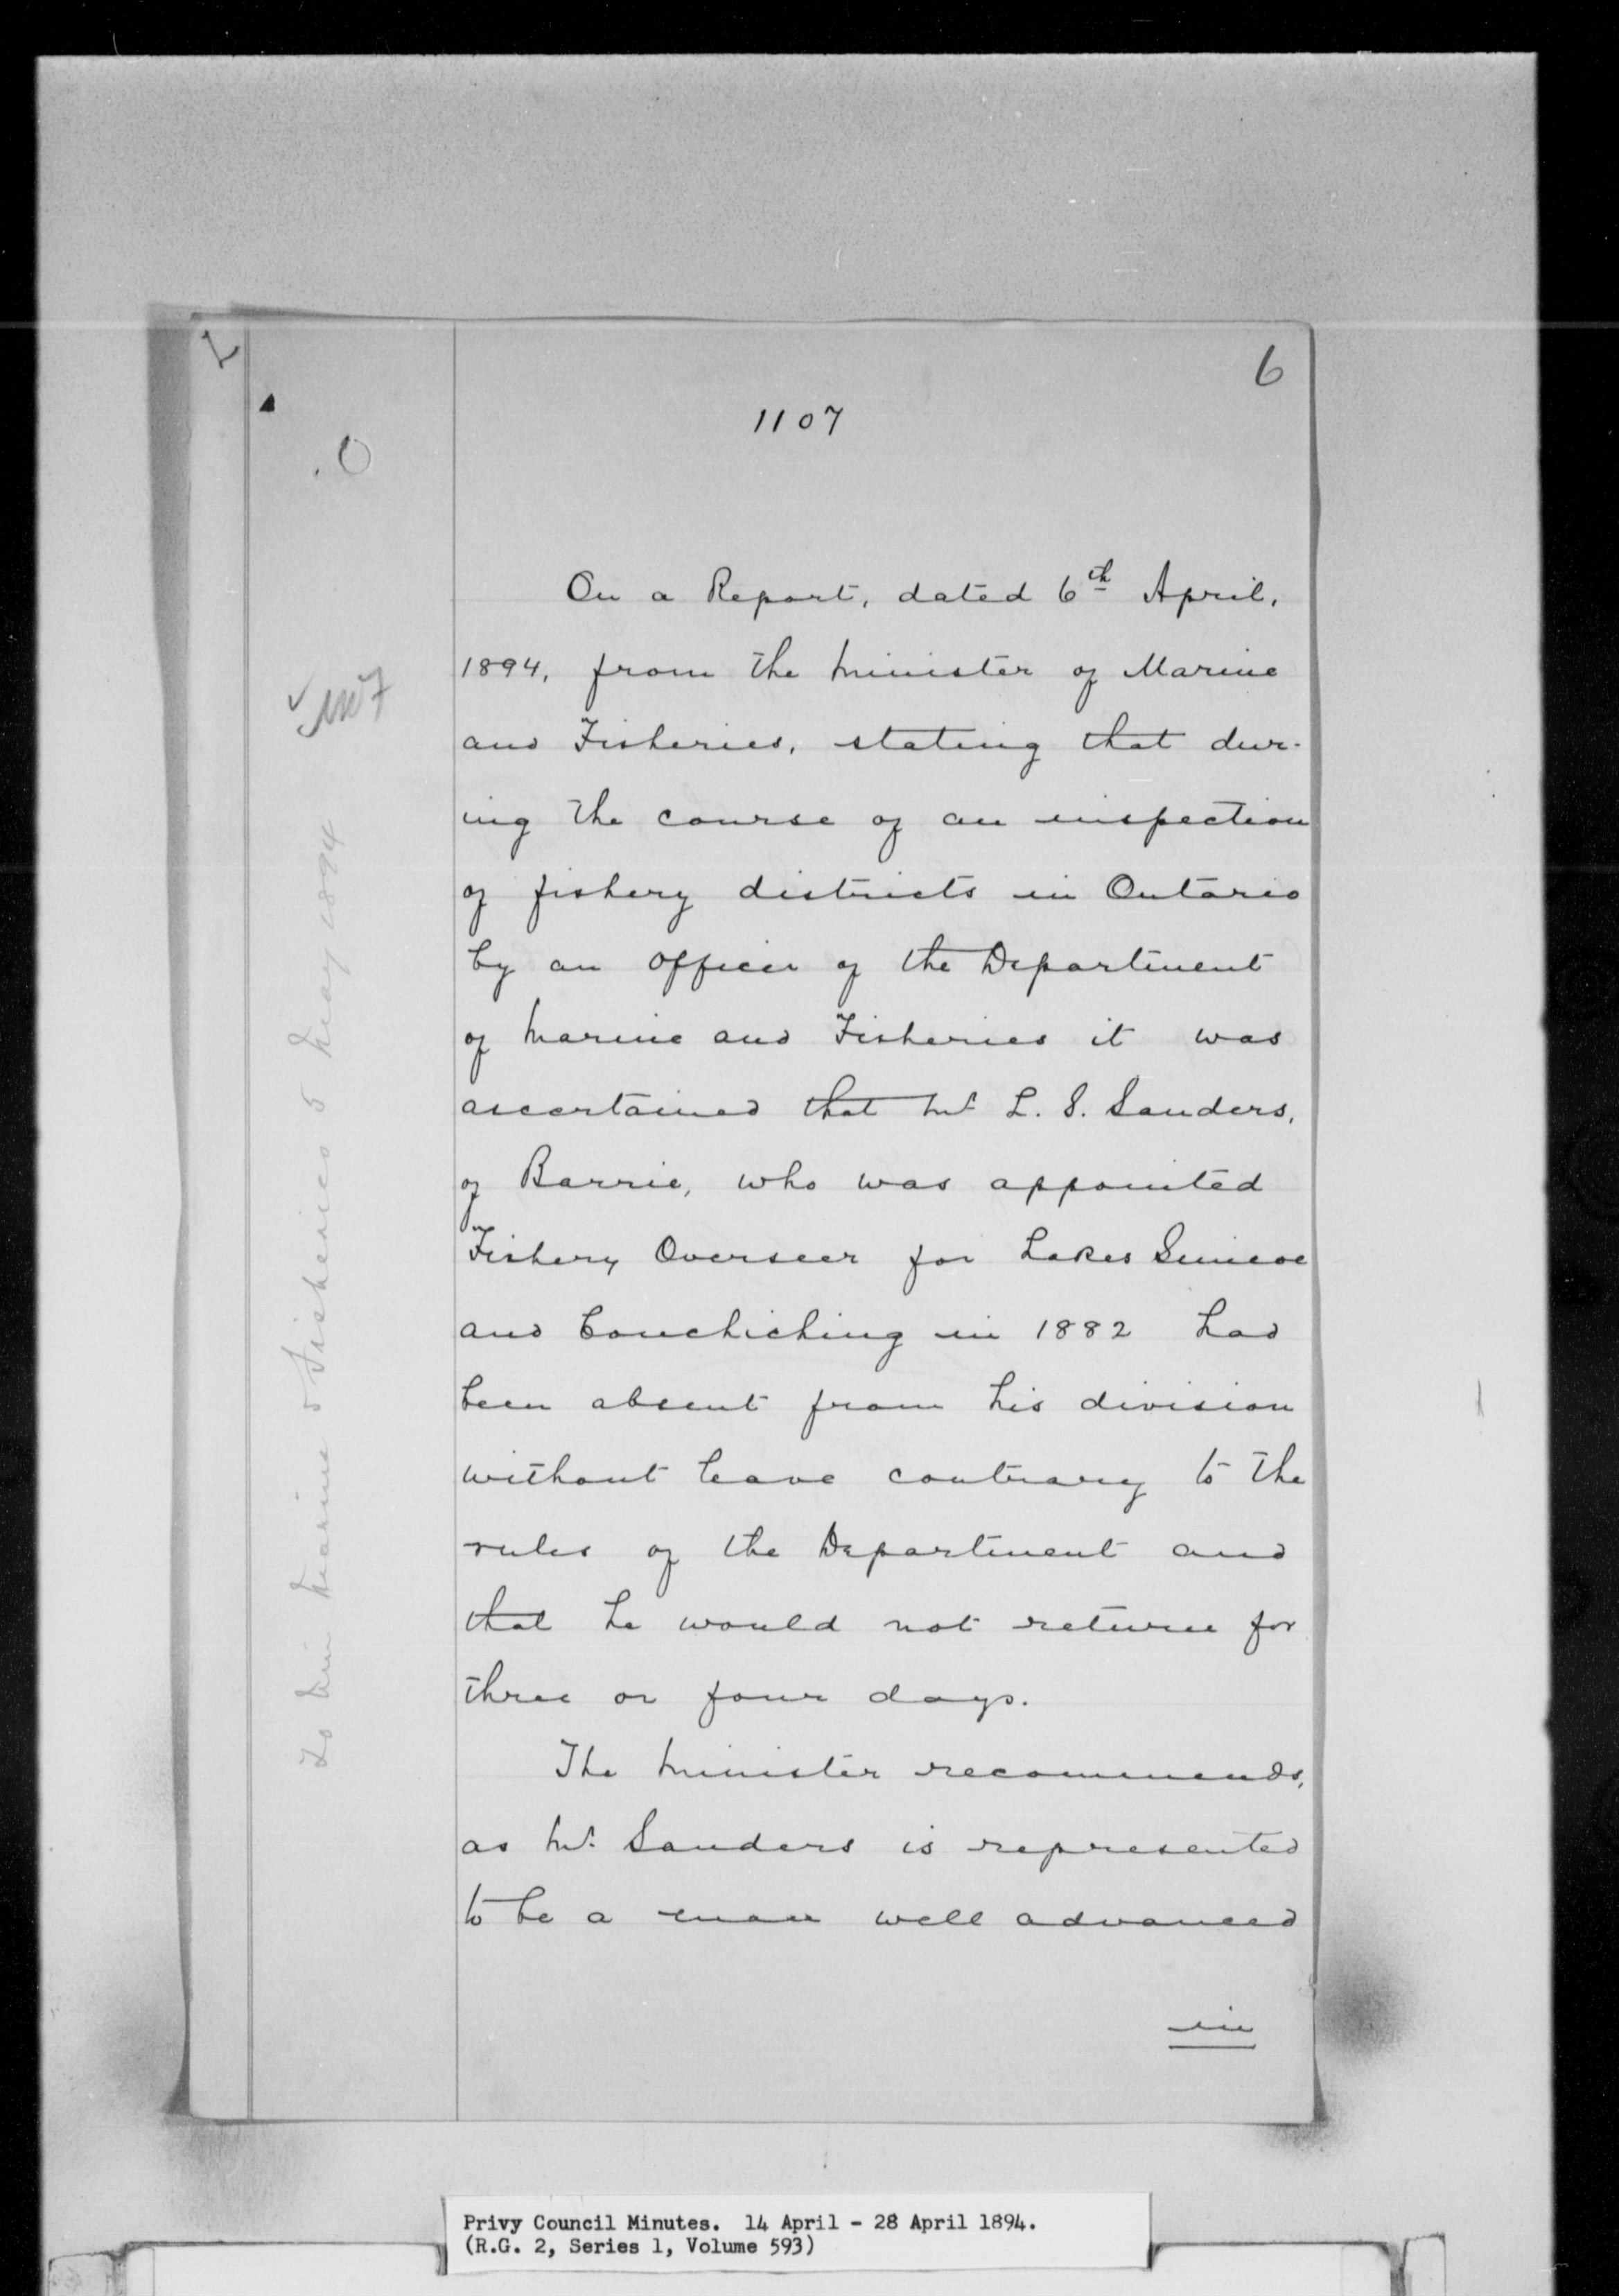 6
1107
On a Report, dated 6th April,
1894, from the Minister of Marine
and Fisheries, stating that dur-
ing the course of an inspection
of fishery districts in Ontario
by an officer of the Department
of Marine and Fisheries it was
ascertained that Mr. L. S. Sanders,
of Barrie, who was appointed
Fishery Overseer for Lakes Simcoe
and Couchiching in 1882 had
been absent from his division
without leave contrary to the
rules of the Department and
that he would not return for
three or four days.
The Minister recommends,
as Mr. Sanders is represented
to be a man well advanced
in
To Min Marine & Fisheries 5 May 1894
Privy Council Minutes. 14 April - 28 April 1894.
(R.G. 2, Series 1, Volume 593)